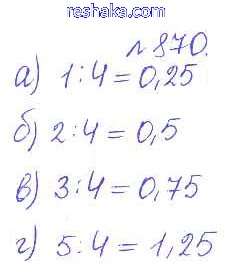 reshaka.com
№870.
а) 1:4=0,25
б) 2:4=0,5
в) 3:4=0,75
г) 5:4=1,25